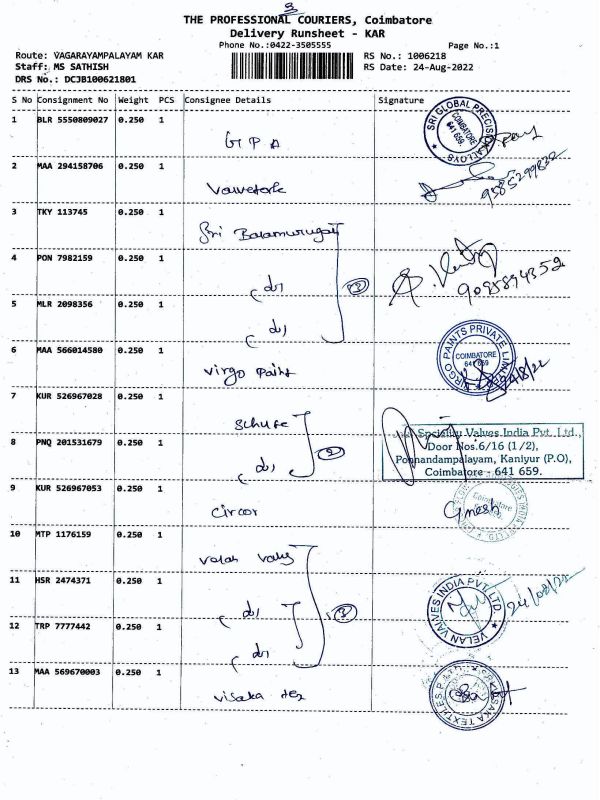 3
THE PROFESSIONAL COURIERS, Coimbatore
Delivery Runsheet - KAR
Phone No.:0422-3505555
Page No.:1
Route: VAGARAYAMPALAYAM KAR
RS No.: 1006218
Staff: MS SATHISH
RS Date: 24-Aug-2022
DRS No.: DCJB100621801
S No Consignment No Weight PCS Consignee Details Signature
1 BLR 5550809027 0.250 1
SRI GLOBAL PRECISION ALLOYS COIMBATORE 641 659
G P A
2 MAA 294158706 0.250 1
9585299832
3 TKY 113745 0.250 1
Sri Balamurugan
4 PON 7982159 0.250 1
(do) 3
9095894352
5 MLR 2098356 0.250 1
(do)
6 MAA 566014580 0.250 1
VIRGO PAINTS PRIVATE LIMITED COIMBATORE 641 659
virgo paint
24/8/22
7 KUR 526967028 0.250 1
Schufe
Speciality Valves India Pvt. Ltd.,
8 PNQ 201531679 0.250 1
Door Nos.6/16 (1/2),
(do) 2
Ponnandampalayam, Kaniyur (P.O),
Coimbatore - 641 659.
9 KUR 526967053 0.250 1
Circor
Ginesh
10 MTP 1176159 0.250 1
velan valve
11 HSR 2474371 0.250 1
VELAN VALVES INDIA PVT. LTD.
24/08/22
(do) 3
12 TRP 7777442 0.250 1
(do)
13 MAA 569670003 0.250 1
visaka tex